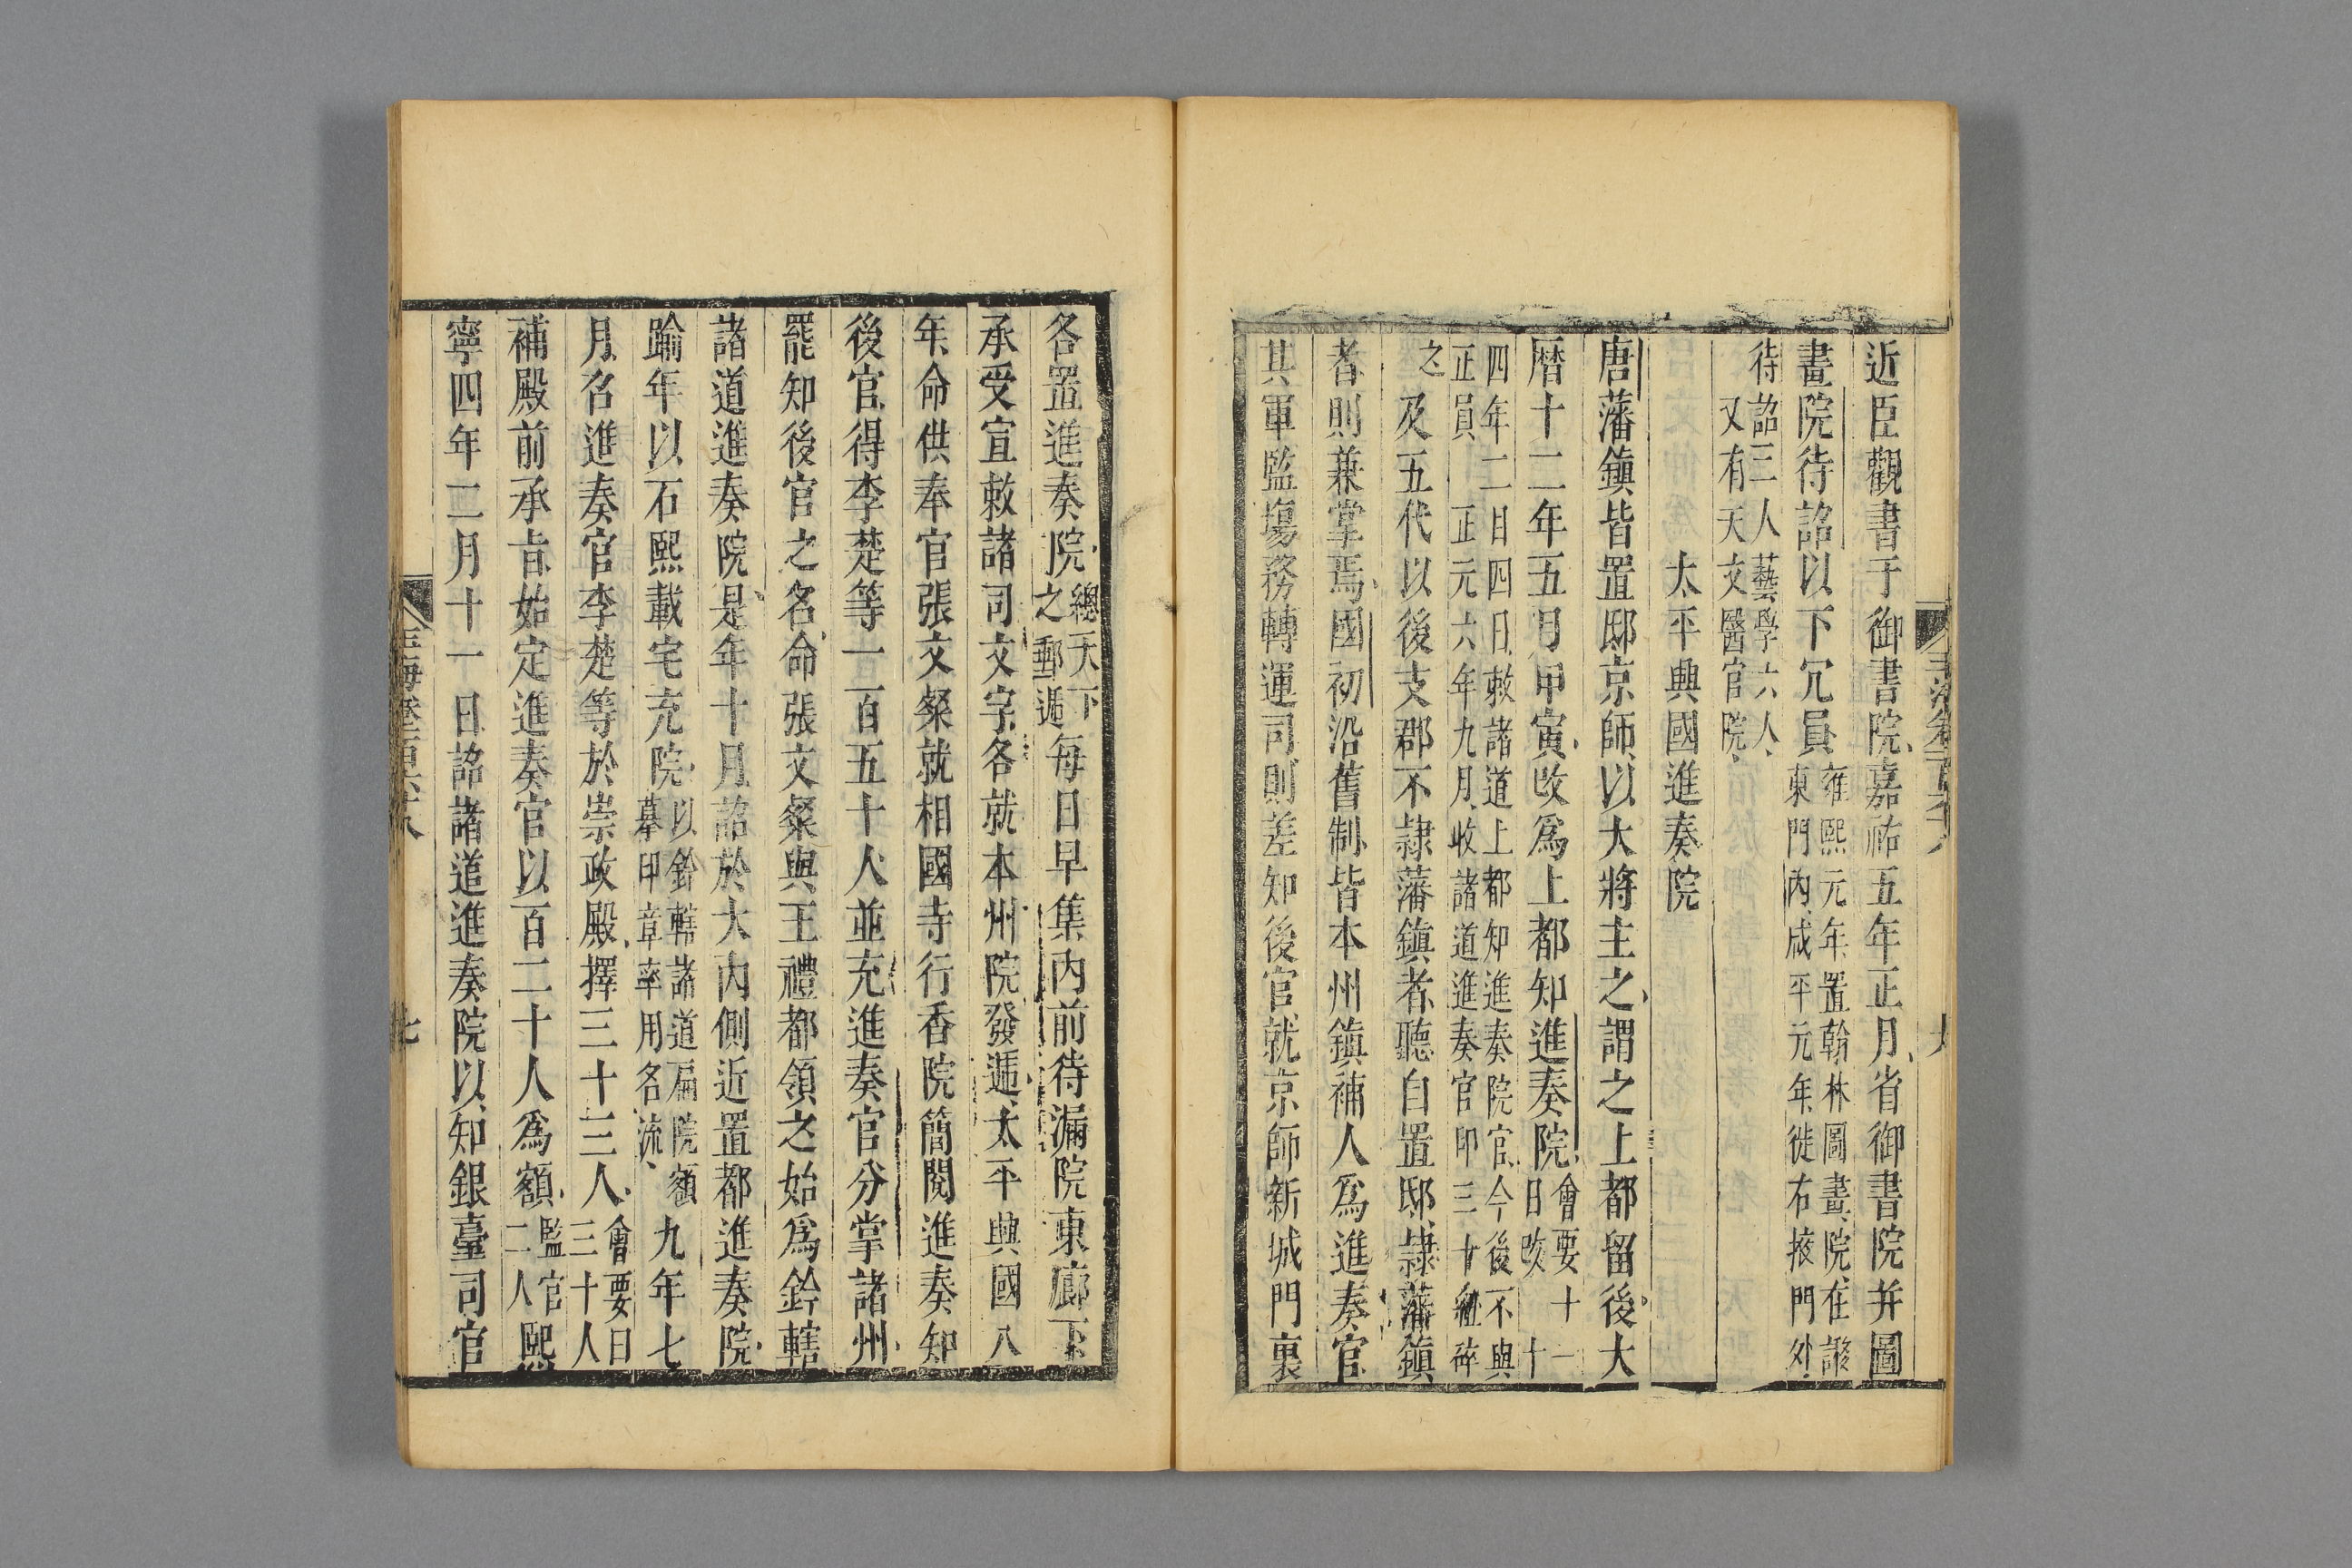 近臣觀書于御書院嘉祐五年正月省御書院并圖
畫院待詔以下冗員雍熙元年置翰林圖畫院在
東門內咸平元年徙右掖門外
待詔三人藝學六人
又有天文醫官院
太平興國進奏院
唐藩鎮皆置邸京師以大將主之謂之上都留後大
曆十二年五月甲寅改爲上都知進奏院會要十一
日改十
四年二月四日敕諸道上都知進奏院官今後不與
正員正元六年九月收諸道進奏官印三十紐碎
之及五代以後支郡不隷藩鎮者聽自置邸隷藩鎮
者則兼掌焉國初沿舊制皆本州鎮補人爲進奏官
其軍監場務轉運司則差知後官就京師新城門裏
各置進奏院總天下
之郵遞每日早集內前待漏院東廊下
承受宣敕諸司文字各就本州院發遞太平興國八
年命供奉官張文粲就相國寺行香院簡閱進奏知
後官得李楚等一百五十人並充進奏官分掌諸州
罷知後官之名命張文粲與王禮都領之始爲鈐轄
諸道進奏院是年十月詔於大內側近置都進奏院
踰年以石熙載宅充院以鈐轄諸道扁院額
摹印章率用名流九年七
月召進奏官李楚等於崇政殿擇三十三人會要曰
三十人
補殿前承旨始定進奏官以百二十人爲額監官
二人熙
寧四年二月十一日詔諸道進奏院以知銀臺司官
玉海卷一百六十八
七